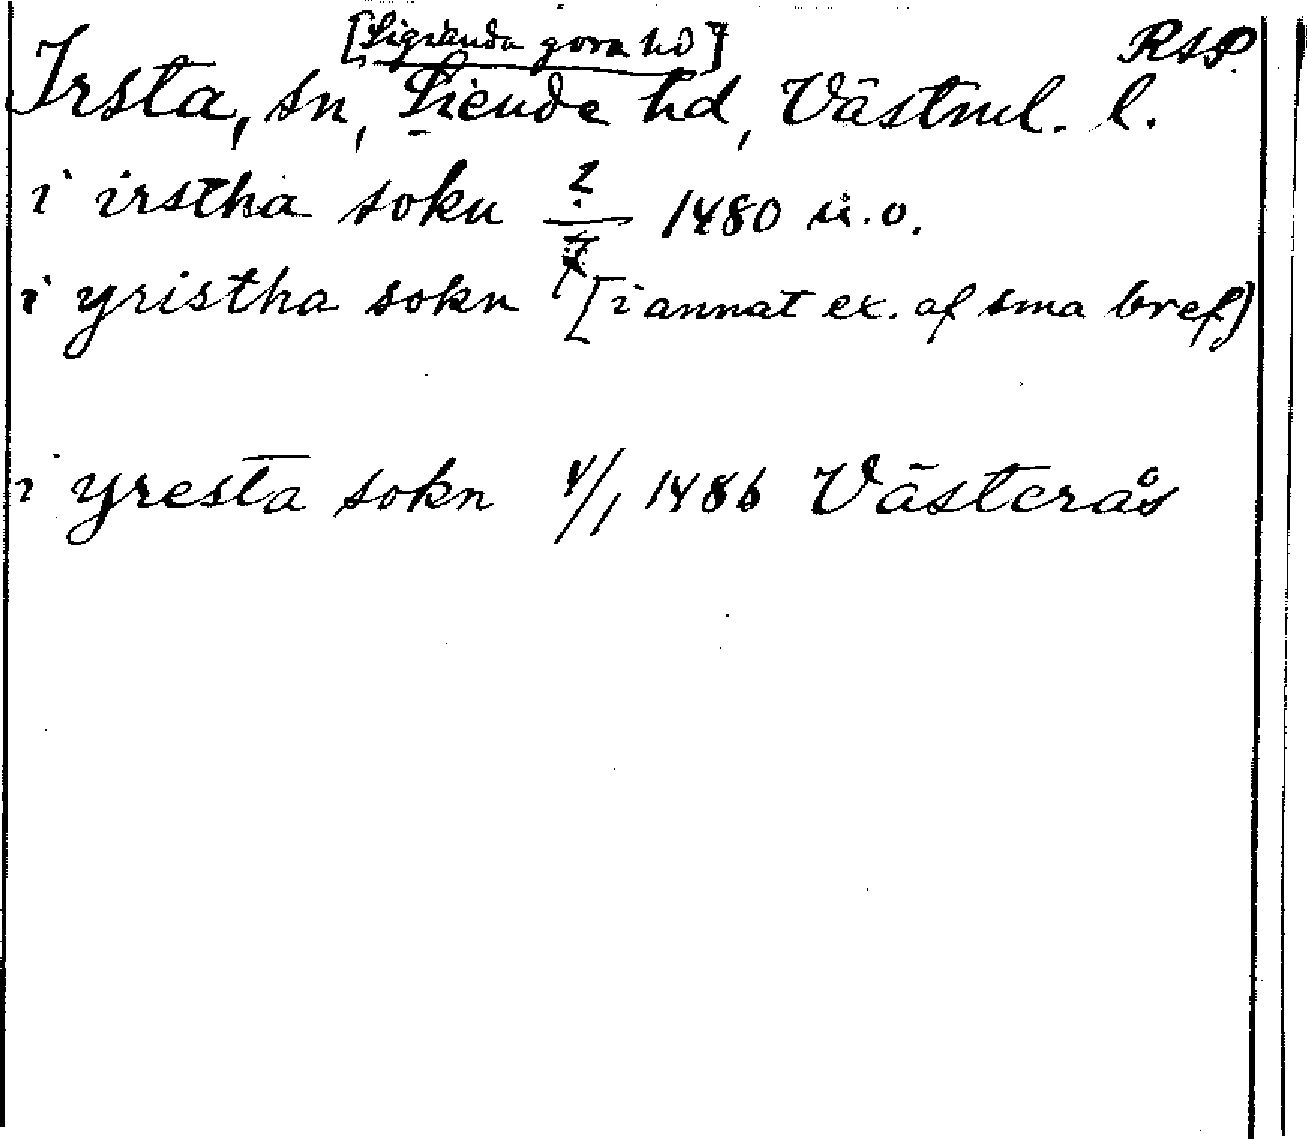 [Sigienda gora hd] RAP
Irsta, sn, Siende hd, Västml. l.
i irstha sokn 2/7 1480 u.o.
i yristha sokn [i annat ex. af sma bref]
i yresta sokn 4/1 1486 Västerås